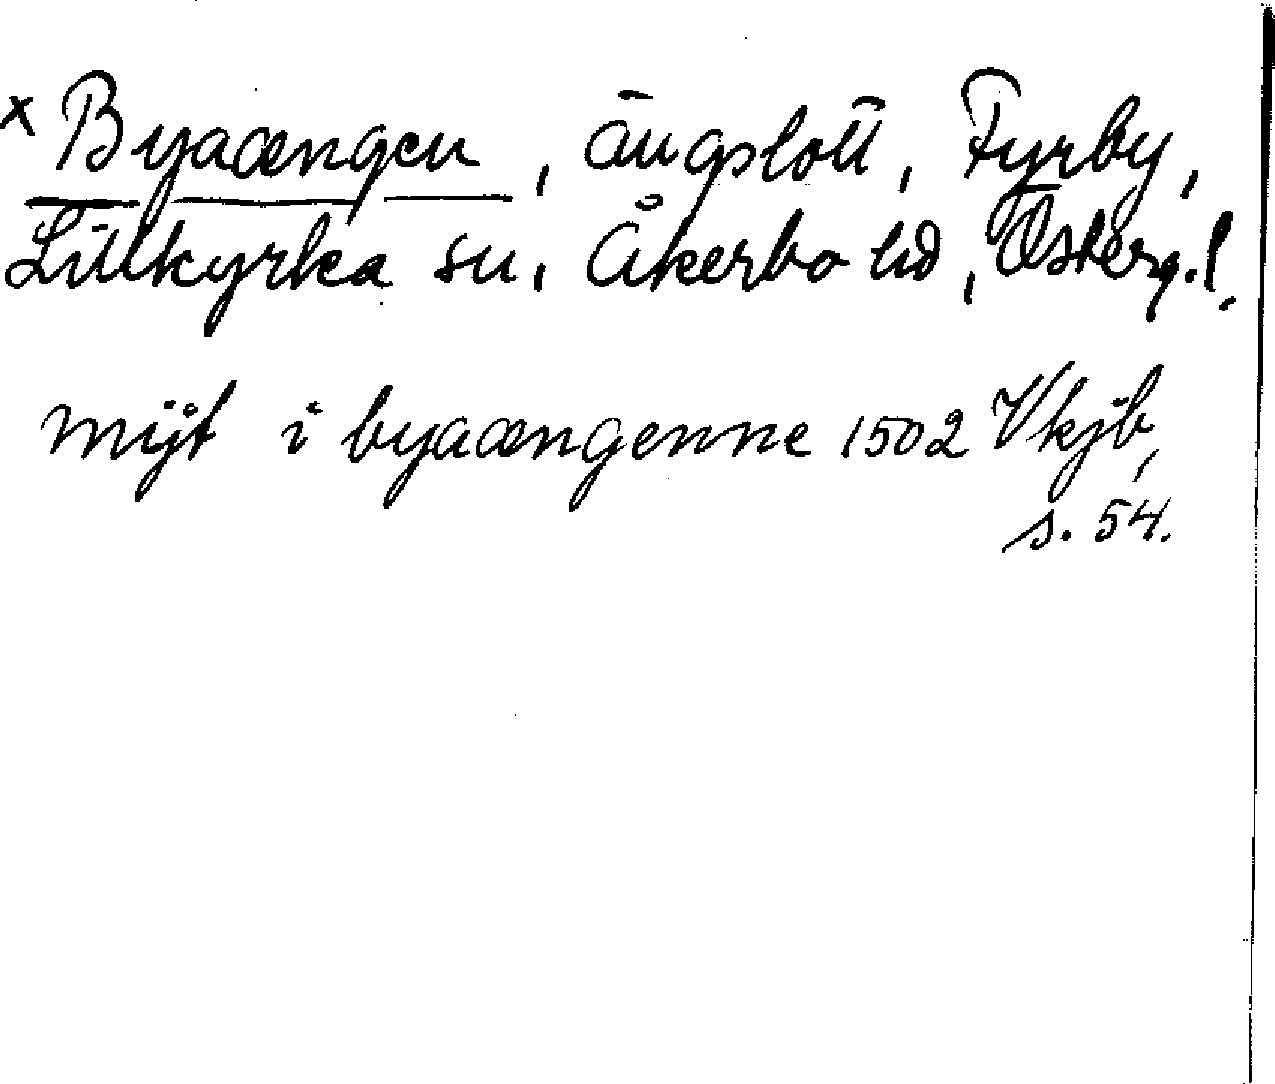 x Byaængen, ängslott, Fyrby,
Lillkyrka sn, Åkerbo hd, Österg.l.
mijt i byaængenne 1502 Vkjb,
s. 54.